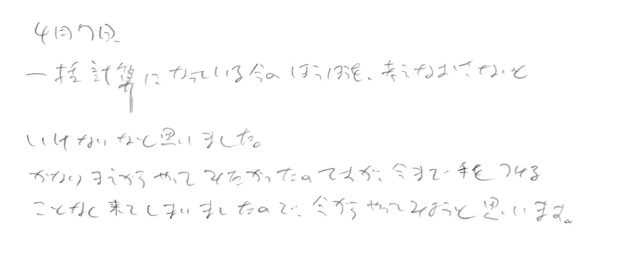 4月7日
一括計算になっている今のほうほを、考えなおさないと
いけないなと思いました。
かなりまえからやってみたかったのですが、今まで手をつける
ことなく来てしまいましたので、今からやってみようと思います。